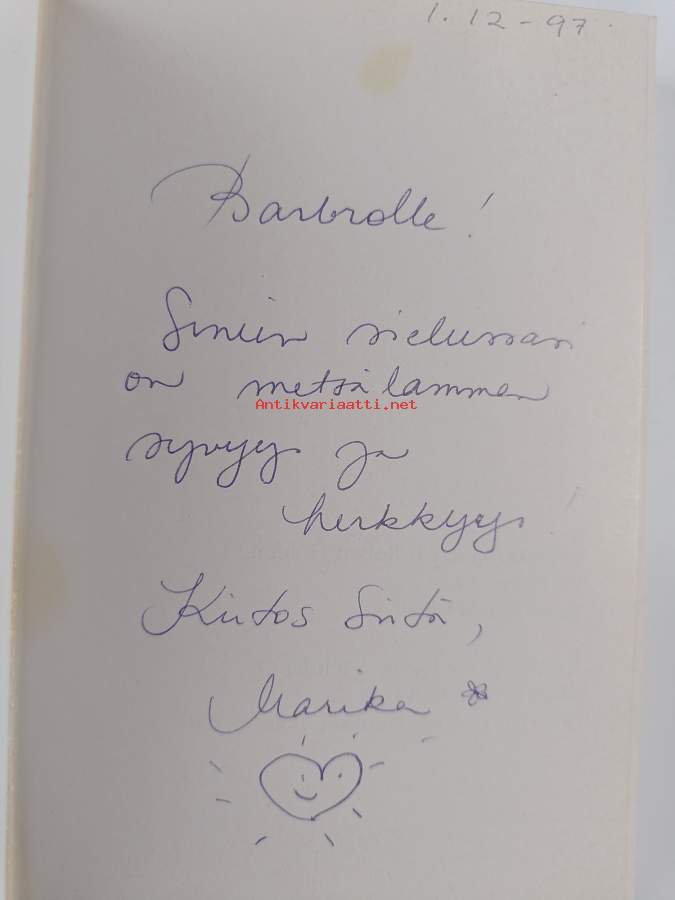 1.12-97.
Barbrolle!
Sinun sielussasi
on metsälammen
Antikvariaatti.net
syvyys ja
herkkyys!
Kiitos Siitä,
Marika